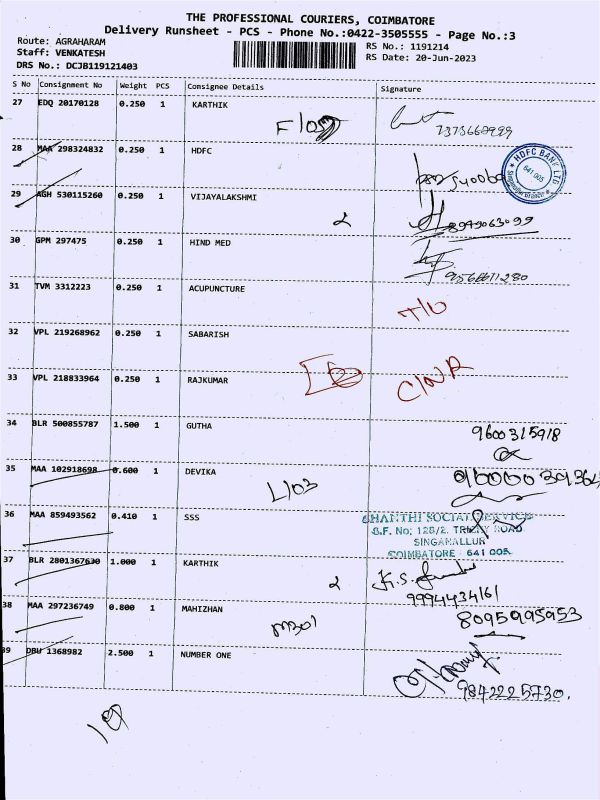 THE PROFESSIONAL COURIERS, COIMBATORE
Delivery Runsheet - PCS - Phone No.:0422-3505555 - Page No.:3
Route: AGRAHARAM
RS No.: 1191214
Staff: VENKATESH
RS Date: 20-Jun-2023
DRS No.: DCJB119121403
S No Consignment No Weight PCS Consignee Details Signature
27 EDQ 20170128 0.250 1 KARTHIK
7373660999
28 MAA 298324832 0.250 1 HDFC
HDFC BANK LTD
641 005
29 AGH 530115260 0.250 1 VIJAYALAKSHMI
2
8939063099
30 GPM 297475 0.250 1 HIND MED
9566611280
31 TVM 3312223 0.250 1 ACUPUNCTURE
T/O
32 VPL 219268962 0.250 1 SABARISH
33 VPL 218833964 0.250 1 RAJKUMAR
C/N.R
34 BLR 500855787 1.500 1 GUTHA
9600315918
35 MAA 102918698 0.600 1 DEVIKA
L103
36 MAA 859493562 0.410 1 SSS
SHANTHI SOCIAL SERVICE
S.F. No; 128/2. TRICHY ROAD
SINGANALLUR
COIMBATORE - 641 005.
37 BLR 2801367630 1.000 1 KARTHIK
2
K.S.
9994434161
38 MAA 297236749 0.800 1 MAHIZHAN
M301
8095995953
39 DBU 1368982 2.500 1 NUMBER ONE
9842225730.